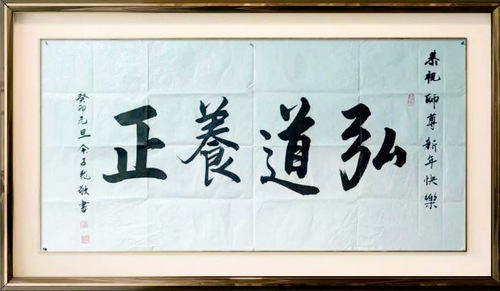 恭祝師尊新年快樂
弘道養正
癸卯元旦余子敬書